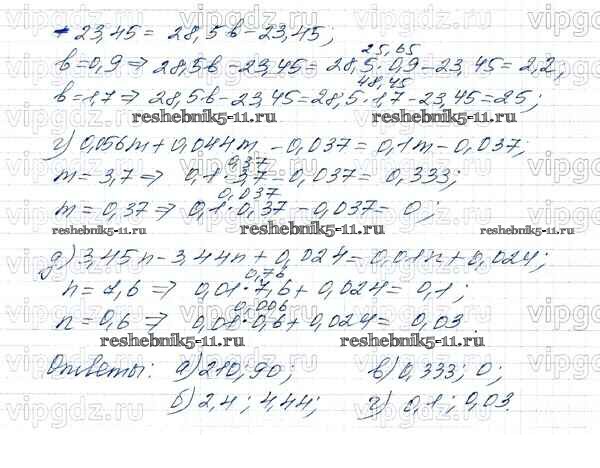 - 23,45 = 28,5b - 23,45;
25,65
b = 0,9 ⇒ 28,5b - 23,45 = 28,5 · 0,9 - 23,45 = 2,2,
48,45
b = 1,7 ⇒ 28,5b - 23,45 = 28,5 · 1,7 - 23,45 = 25;
reshebnik5-11.ru reshebnik5-11.ru
г) 0,056m + 0,044m - 0,037 = 0,1m - 0,037;
0,37
m = 3,7 ⇒ 0,1 · 3,7 - 0,037 = 0,333;
0,037
m = 0,37 ⇒ 0,1 · 0,37 - 0,037 = 0;
reshebnik5-11.ru reshebnik5-11.ru reshebnik5-11.ru
д) 3,45n - 3,44n + 0,024 = 0,01n + 0,024;
0,076
n = 7,6 ⇒ 0,01 · 7,6 + 0,024 = 0,1;
0,006
n = 0,6 ⇒ 0,01 · 0,6 + 0,024 = 0,03.
reshebnik5-11.ru reshebnik5-11.ru
Ответы: а) 210; 90; в) 0,333; 0;
б) 2,4; 4,44; г) 0,1; 0,03.
vipgdz.ru